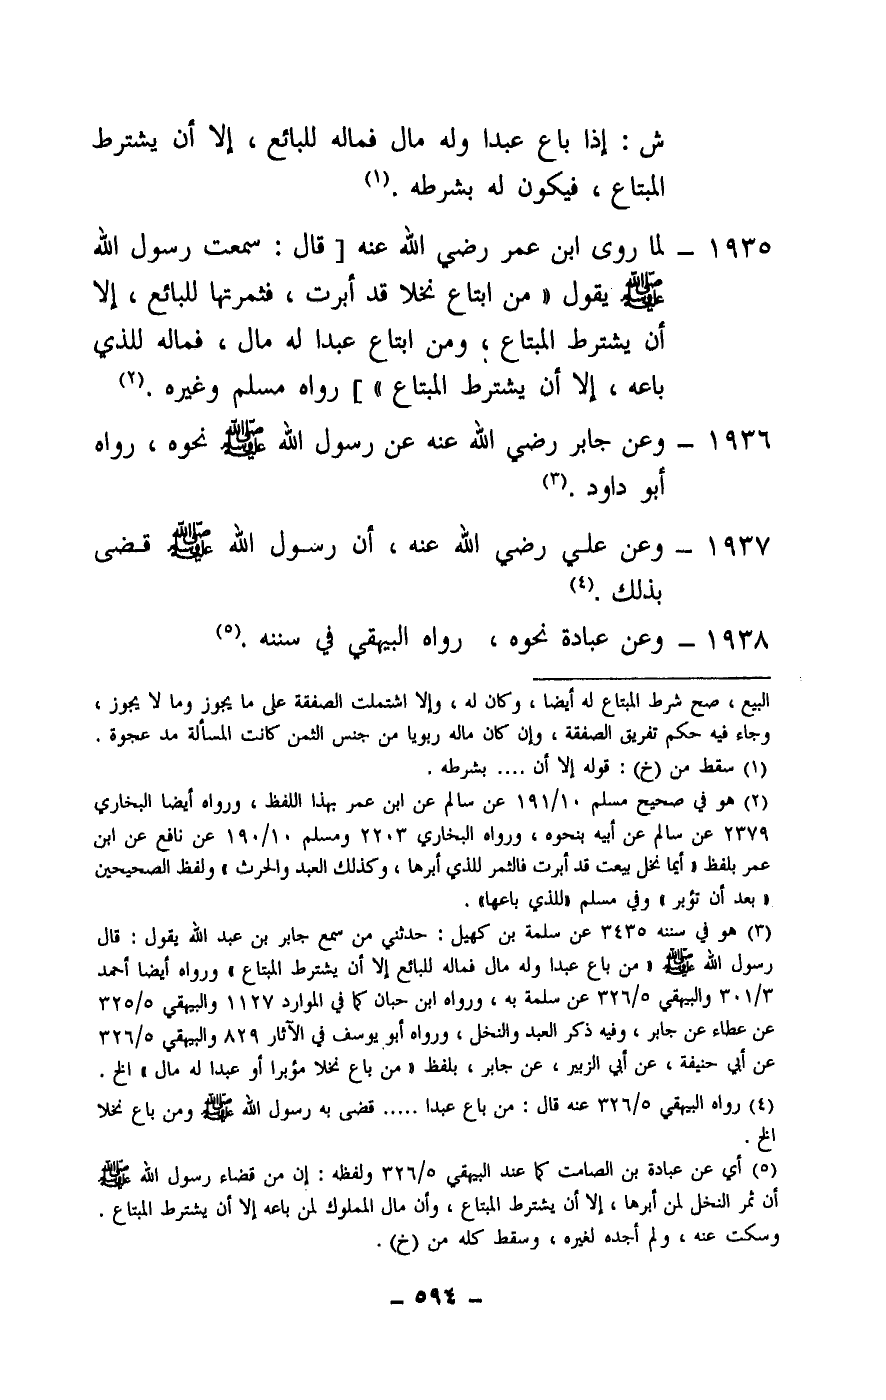 ش : إذا باع عبدا وله مال فماله للبائع ، إلا أن يشترط
المبتاع ، فيكون له بشرطه .(١)
١٩٣٥ – لما روى ابن عمر رضي الله عنه [ قال : سمعت رسول الله
ﷺ يقول « من ابتاع نخلا قد أبرت ، فثمرتها للبائع ، إلا
أن يشترط المبتاع ؛ ومن ابتاع عبدا له مال ، فماله للذي
باعه ، إلا أن يشترط المبتاع » ] رواه مسلم وغيره .(٢)
١٩٣٦ – وعن جابر رضي الله عنه عن رسول الله ﷺ نحوه ، رواه
أبو داود .(٣)
١٩٣٧ – وعن علي رضي الله عنه ، أن رسول الله ﷺ قضى
بذلك .(٤)
١٩٣٨ – وعن عبادة نحوه ، رواه البيهقي في سننه .(٥)
البيع ، صح شرط المبتاع له أيضا ، وكان له ، وإلا اشتملت الصفقة على ما يجوز وما لا يجوز ،
وجاء فيه حكم تفريق الصفقة ، وإن كان ماله ربويا من جنس الثمن كانت المسألة مد عجوة .
(١) سقط من (خ) : قوله إلا أن .... بشرطه .
(٢) هو في صحيح مسلم ١٩١/١٠ عن سالم عن ابن عمر بهذا اللفظ ، ورواه أيضا البخاري
٢٣٧٩ عن سالم عن أبيه بنحوه ، ورواه البخاري ٢٢٠٣ ومسلم ١٩٠/١٠ عن نافع عن ابن
عمر بلفظ « أيما نخل بيعت قد أبرت فالثمر للذي أبرها ، وكذلك العبد والحرث » ولفظ الصحيحين
« بعد أن تؤبر » وفي مسلم «للذي باعها» .
(٣) هو في سننه ٣٤٣٥ عن سلمة بن كهيل : حدثني من سمع جابر بن عبد الله يقول : قال
رسول الله ﷺ « من باع عبدا وله مال فماله للبائع إلا أن يشترط المبتاع » ورواه أيضا أحمد
٣٠١/٣ والبيهقي ٣٢٦/٥ عن سلمة به ، ورواه ابن حبان كما في الموارد ١١٢٧ والبيهقي ٣٢٥/٥
عن عطاء عن جابر ، وفيه ذكر العبد والنخل ، ورواه أبو يوسف في الآثار ٨٢٩ والبيهقي ٣٢٦/٥
عن أبي حنيفة ، عن أبي الزبير ، عن جابر ، بلفظ « من باع نخلا مؤبرا أو عبدا له مال » الخ .
(٤) رواه البيهقي ٣٢٦/٥ عنه قال : من باع عبدا ..... قضى به رسول الله ﷺ ومن باع نخلا
الخ .
(٥) أي عن عبادة بن الصامت كما عند البيهقي ٣٢٦/٥ ولفظه : إن من قضاء رسول الله ﷺ
أن ثمر النخل لمن أبرها ، إلا أن يشترط المبتاع ، وأن مال المملوك لمن باعه إلا أن يشترط المبتاع .
وسكت عنه ، ولم أجده لغيره ، وسقط كله من (خ) .
– ٥٩٤ –